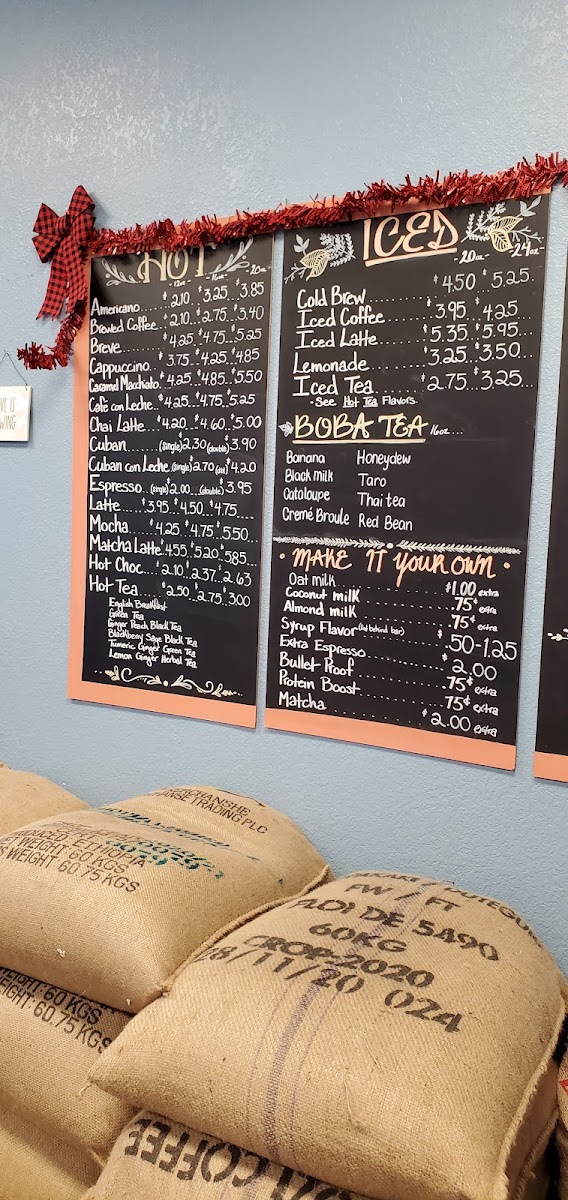 HOT
12oz - 16oz - 20oz
Americano $2.10 $3.25 $3.85
Brewed Coffee $2.10 $2.75 $3.40
Breve $4.25 $4.75 $5.25
Cappuccino $3.75 $4.25 $4.85
Caramel Macchiato $4.25 $4.85 $5.50
Cafe con Leche $4.25 $4.75 $5.25
Chai Latte $4.20 $4.60 $5.00
Cuban (single) $2.30 (double) $3.90
Cuban con Leche (single) $2.70 $4.20
Espresso (single) $2.00 (double) $3.95
Latte $3.95 $4.50 $4.75
Mocha $4.25 $4.75 $5.50
Matcha Latte $4.55 $5.20 $5.85
Hot Choc. $2.10 $2.37 $2.63
Hot Tea $2.50 $2.75 $3.00
English Breakfast
Green Tea
Ginger Peach Black Tea
Blackberry Sage Black Tea
Tumeric Ginger Green Tea
Lemon Ginger Herbal Tea
ICED
- 20oz - 24oz
Cold Brew $4.50 $5.25
Iced Coffee $3.95 $4.25
Iced Latte $5.35 $5.95
Lemonade $3.25 $3.50
Iced Tea $2.75 $3.25
- See Hot Tea Flavors
BOBA TEA 16oz...
Banana Honeydew
Black milk Taro
Cataloupe Thai tea
Cremé Broule Red Bean
• MAKE IT YOUR OWN •
Oat milk $1.00 extra
Coconut milk .75¢ extra
Almond milk .75¢ extra
Syrup Flavor (list behind bar) $.50-1.25
Extra Espresso $2.00
Bullet Proof .75¢ extra
Protein Boost .75¢ extra
Matcha $2.00 extra
TRADING PLC
ETHIOPIA
WEIGHT: 60 KGS
WEIGHT: 60.75 KGS
60 KGS
60.75 KGS
FW / FT
60KG
CROP-2020
28/11/20 024
COFFEE